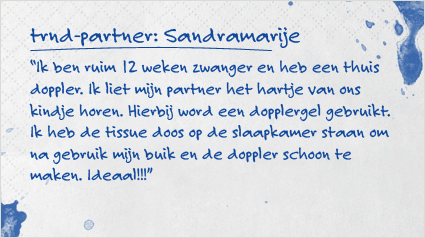 trnd-partner: Sandramarije
"Ik ben ruim 12 weken zwanger en heb een thuis
doppler. Ik liet mijn partner het hartje van ons
kindje horen. Hierbij word een dopplergel gebruikt.
Ik heb de tissue doos op de slaapkamer staan om
na gebruik mijn buik en de doppler schoon te
maken. Ideaal!!!"